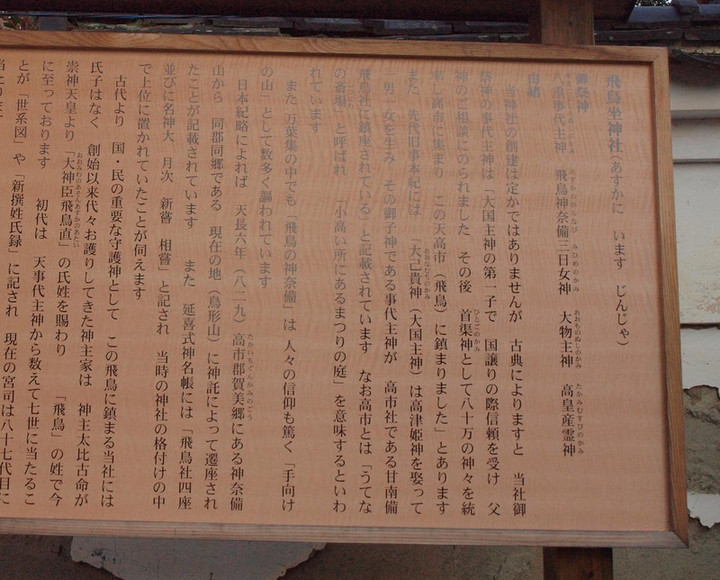 飛鳥坐神社（あすかに　います　じんじゃ）
御祭神
八重事代主神　飛鳥神奈備三日女神　大物主神　高皇産霊神
由緒
　当神社の創建は定かではありませんが　古典によりますと　当社御
祭神の事代主神は「大国主神の第一子で　国譲りの際信頼を受け　父
神のご相談にのられました　その後　首渠神として八十万の神々を統
率し高市に集まり　この天高市（飛鳥）に鎮まりました」とあります
また　先代旧事本紀には　「大己貴神（大国主神）は高津姫神を娶って
一男一女を生み　その御子神である事代主神が　高市社である甘南備
飛鳥社に鎮座されている」と記載されています　なお高市とは「うてな
の斎場」と呼ばれ　「小高い所にあるまつりの庭」を意味するといわ
れています
　また　万葉集の中でも「飛鳥の神奈備」は　人々の信仰も篤く「手向け
の山」として数多く謳われています
　日本紀略によれば　天長六年（八二九）　高市郡賀美郷にある神奈備
山から　同郡同郷である　現在の地（鳥形山）に神託によって遷座され
たことが記載されています　また　延喜式神名帳には「飛鳥社四座
並びに名神大　月次　新嘗　相嘗」と記され　当時の神社の格付けの中
で上位に置かれていたことが伺えます
　古代より　国・民の重要な守護神として　この飛鳥に鎮まる当社には
氏子はなく　創始以来代々お護りしてきた神主家は　神主太比古命が
崇神天皇より「大神臣飛鳥直」の氏姓を賜わり　「飛鳥」の姓で今
に至っております　初代は　天事代主神から数えて七世に当たるこ
とが「世系図」や「新撰姓氏録」に記され　現在の宮司は八十七代目に